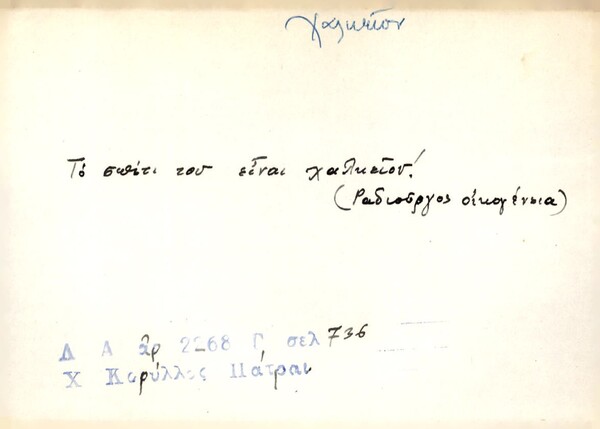 χαλκεῖον
Τό σπίτι του εἶναι χαλκεῖον!
(Ραδιοῦργος οἰκογένεια)
Δ Α ἀρ 2268 Γ σελ 736
Χ Κορύλλος Πάτραι